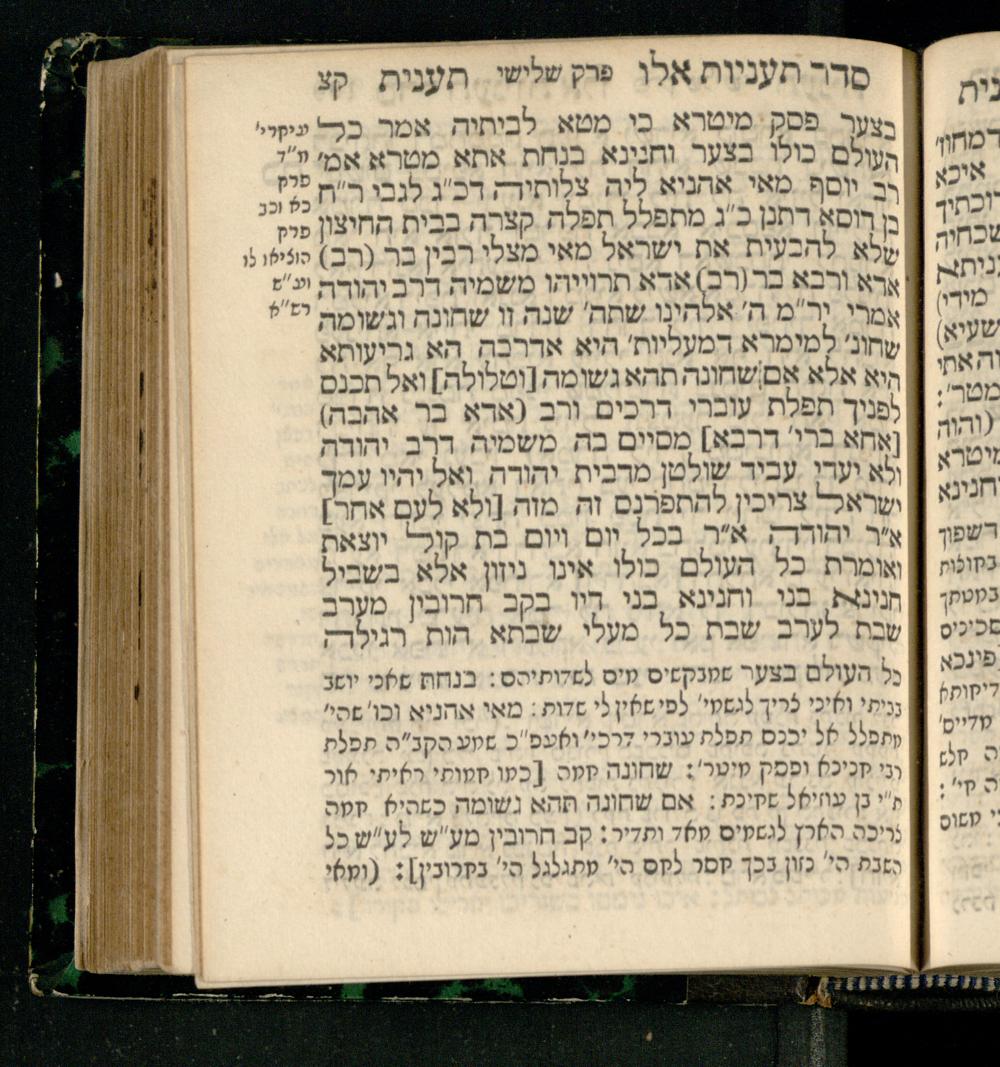 סדר תעניות אלו פרק שלישי תענית קצ
בצער פסק מיטרא כי מטא לביתיה אמר כל
העולם כולו בצער וחנינא בנחת אתא מטרא אמ'
רב יוסף מאי אהניא ליה צלותיה דכ"ג לגבי ר"ח
בן דוסא דתנן כ"ג מתפלל תפלה קצרה בבית החיצון
שלא להבעית את ישראל מאי מצלי רבין בר (רב)
אדא ורבא בר (רב) אדא תרוייהו משמיה דרב יהודה
אמרי יר"מ ה' אלהינו שתה' שנה זו שחונה וגשומה
שחונ' למימרא דמעליות' היא אדרבה הא גריעותא
היא אלא אם שחונה תהא גשומה [וטלולה] ואל תכנס
לפניך תפלת עוברי דרכים ורב (אדא בר אהבה)
[אחא ברי' דרבא] מסיים בה משמיה דרב יהודה
ולא יעדי עביד שולטן מדבית יהודה ואל יהיו עמך
ישראל צריכין להתפרנס זה מזה [ולא לעם אחר]
א"ר יהודה א"ר בכל יום ויום בת קול יוצאת
ואומרת כל העולם כולו אינו ניזון אלא בשביל
חנינא בני וחנינא בני דיו בקב חרובין מערב
שבת לערב שבת כל מעלי שבתא הות רגילה
כל העולם בצער שמבקשים מים לשדותיהם : בנחת שאני יושב
בביתי ואיני צריך לגשמי' לפי שאין לי שדות : מאי אהניא וכו' שהי'
מתפלל אל יכנס תפלת עוברי דרכי' ואעפ"כ שמע הקב"ה תפלת
רבי חנינא ופסק מיטר' : שחונה חמה [כמו חמותי ראיתי אור
ת"י בן עוזיאל שחינת : אם שחונה תהא גשומה כשהיא חמה
צריכה הארץ לגשמים מאד ותדיר : קב חרובין מע"ש לע"ש כל
השבת הי' נזון בכך חסר לחם הי' מתגלגל הי' בחרובין] : (ומאי
עיקרי'
מ"ד
פרק
כא וכב
פרק
הוציאו לו
וע"ש
רש"א